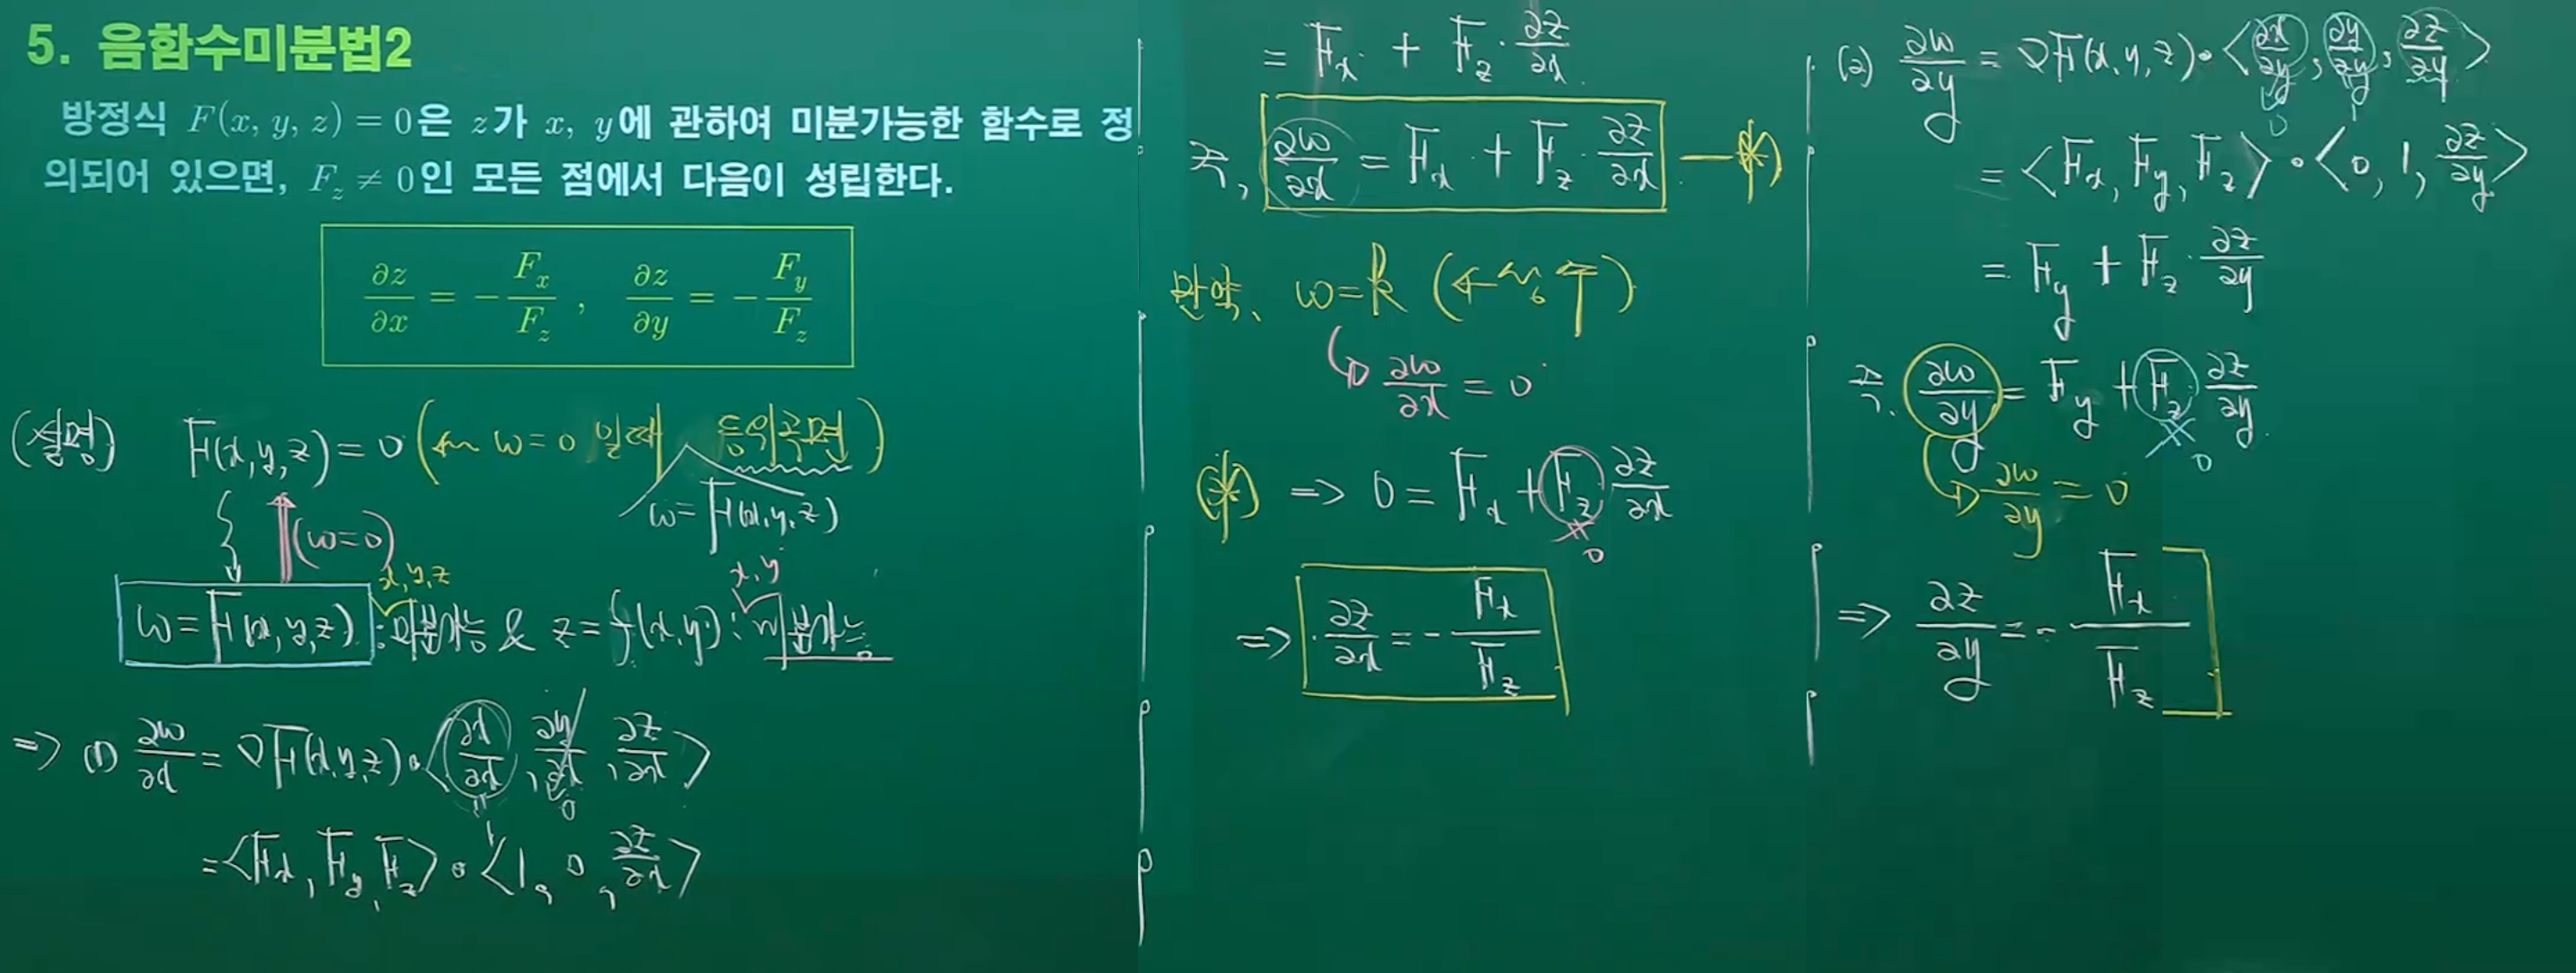 5. 음함수미분법2
방정식 F(x, y, z) = 0은 z가 x, y에 관하여 미분가능한 함수로 정
의되어 있으면, F_z ≠ 0인 모든 점에서 다음이 성립한다.
∂z/∂x = -F_x/F_z , ∂z/∂y = -F_y/F_z
(설명) F(x,y,z)=0 (← w=0 일때 등위곡면)
w=F(x,y,z)
(w=0)
x,y,z
x,y
w=F(x,y,z) : 미분가능 & z=f(x,y) : 미분가능
⇒ (1) ∂w/∂x = ∇F(x,y,z)•<∂x/∂x, ∂y/∂x, ∂z/∂x>
11 0
1
=<F_x, F_y, F_z>•<1, 0, ∂z/∂x>
= F_x + F_z·∂z/∂x
즉, ∂w/∂x = F_x + F_z·∂z/∂x —(*)
만약, w=k
∂w/∂x = 0
(*) ⇒ 0 = F_x + F_z ∂z/∂x
≠ 0
⇒ ∂z/∂x = -F_x/F_z
(2) ∂w/∂y = ∇F(x,y,z)•<∂x/∂y, ∂y/∂y, ∂z/∂y>
0 1
= <F_x, F_y, F_z>•<0, 1, ∂z/∂y>
= F_y + F_z·∂z/∂y
즉, ∂w/∂y = F_y + F_z ∂z/∂y
≠ 0
∂w/∂y = 0
⇒ ∂z/∂y = -F_x/F_z